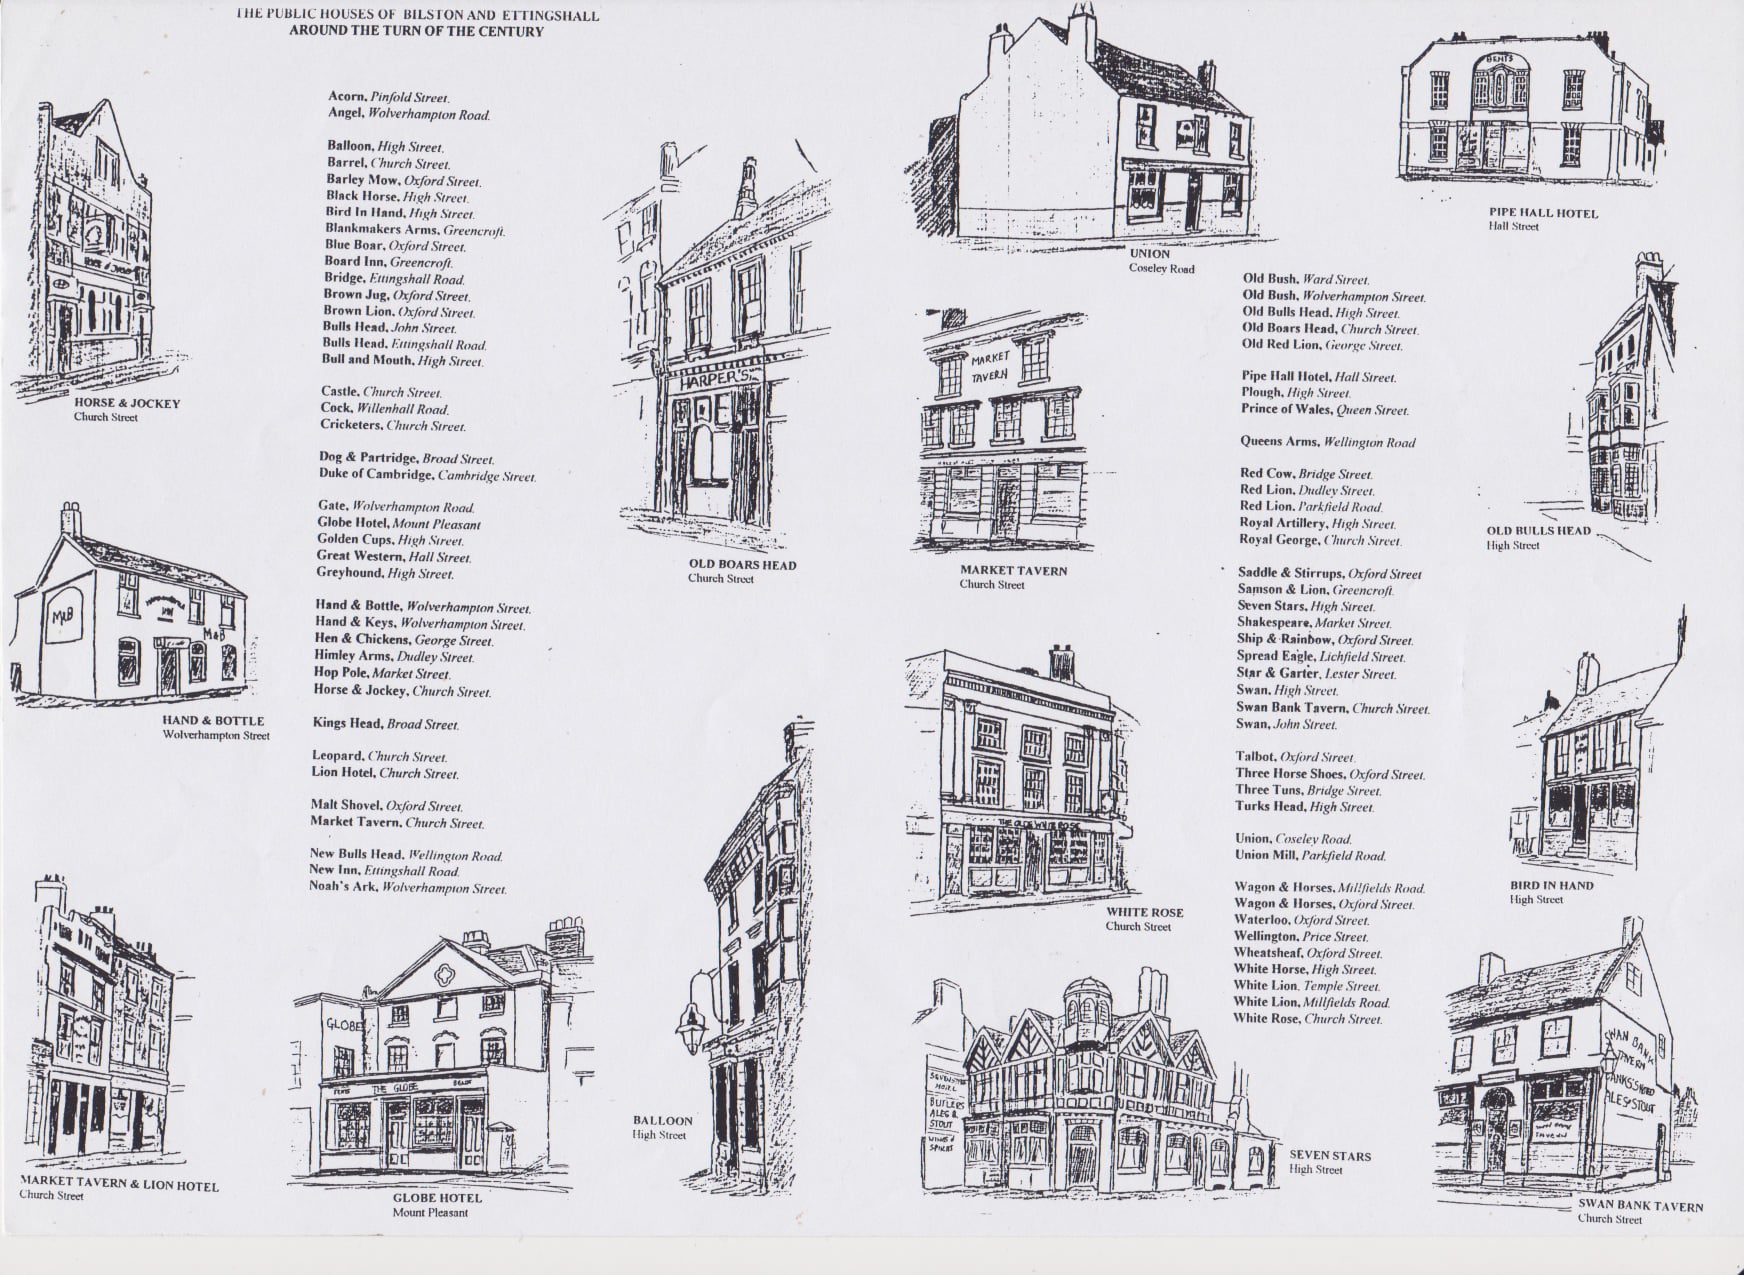 THE PUBLIC HOUSES OF BILSTON AND ETTINGSHALL
AROUND THE TURN OF THE CENTURY
Acorn, Pinfold Street.
Angel, Wolverhampton Road.
Balloon, High Street.
Barrel, Church Street.
Barley Mow, Oxford Street.
Black Horse, High Street.
Bird In Hand, High Street.
Blankmakers Arms, Greencroft.
Blue Boar, Oxford Street.
Board Inn, Greencroft.
Bridge, Ettingshall Road.
Brown Jug, Oxford Street.
Brown Lion, Oxford Street.
Bulls Head, John Street.
Bulls Head, Ettingshall Road.
Bull and Mouth, High Street.
Castle, Church Street.
Cock, Willenhall Road.
Cricketers, Church Street.
Dog & Partridge, Broad Street.
Duke of Cambridge, Cambridge Street.
Gate, Wolverhampton Road.
Globe Hotel, Mount Pleasant
Golden Cups, High Street.
Great Western, Hall Street.
Greyhound, High Street.
Hand & Bottle, Wolverhampton Street.
Hand & Keys, Wolverhampton Street.
Hen & Chickens, George Street.
Himley Arms, Dudley Street.
Hop Pole, Market Street.
Horse & Jockey, Church Street.
Kings Head, Broad Street.
Leopard, Church Street.
Lion Hotel, Church Street.
Malt Shovel, Oxford Street.
Market Tavern, Church Street.
New Bulls Head, Wellington Road.
New Inn, Ettingshall Road.
Noah's Ark, Wolverhampton Street.
HORSE & JOCKEY
Church Street
M&B
INN
M&B
HAND & BOTTLE
Wolverhampton Street
MARKET TAVERN & LION HOTEL
Church Street
HARPER'S
OLD BOARS HEAD
Church Street
GLOBE
THE GLOBE
GLOBE HOTEL
Mount Pleasant
BALLOON
High Street
UNION
Coseley Road
BENTS
PIPE HALL HOTEL
Hall Street
MARKET
TAVERN
MARKET TAVERN
Church Street
THE OLDE WHITE ROSE
WHITE ROSE
Church Street
SEVEN STARS
HOTEL
BUTLERS
ALES &
STOUT
WINES &
SPIRITS
SEVEN STARS
High Street
Old Bush, Ward Street.
Old Bush, Wolverhampton Street.
Old Bulls Head, High Street.
Old Boars Head, Church Street.
Old Red Lion, George Street.
Pipe Hall Hotel, Hall Street.
Plough, High Street.
Prince of Wales, Queen Street.
Queens Arms, Wellington Road
Red Cow, Bridge Street.
Red Lion, Dudley Street.
Red Lion, Parkfield Road.
Royal Artillery, High Street.
Royal George, Church Street.
Saddle & Stirrups, Oxford Street
Samson & Lion, Greencroft.
Seven Stars, High Street.
Shakespeare, Market Street.
Ship & Rainbow, Oxford Street.
Spread Eagle, Lichfield Street.
Star & Garter, Lester Street.
Swan, High Street.
Swan Bank Tavern, Church Street.
Swan, John Street.
Talbot, Oxford Street.
Three Horse Shoes, Oxford Street.
Three Tuns, Bridge Street.
Turks Head, High Street.
Union, Coseley Road.
Union Mill, Parkfield Road.
Wagon & Horses, Millfields Road.
Wagon & Horses, Oxford Street.
Waterloo, Oxford Street.
Wellington, Price Street.
Wheatsheaf, Oxford Street.
White Horse, High Street.
White Lion, Temple Street.
White Lion, Millfields Road.
White Rose, Church Street.
OLD BULLS HEAD
High Street
BIRD IN HAND
High Street
SWAN BANK
TAVERN
ALES & STOUT
SWAN BANK TAVERN
Church Street